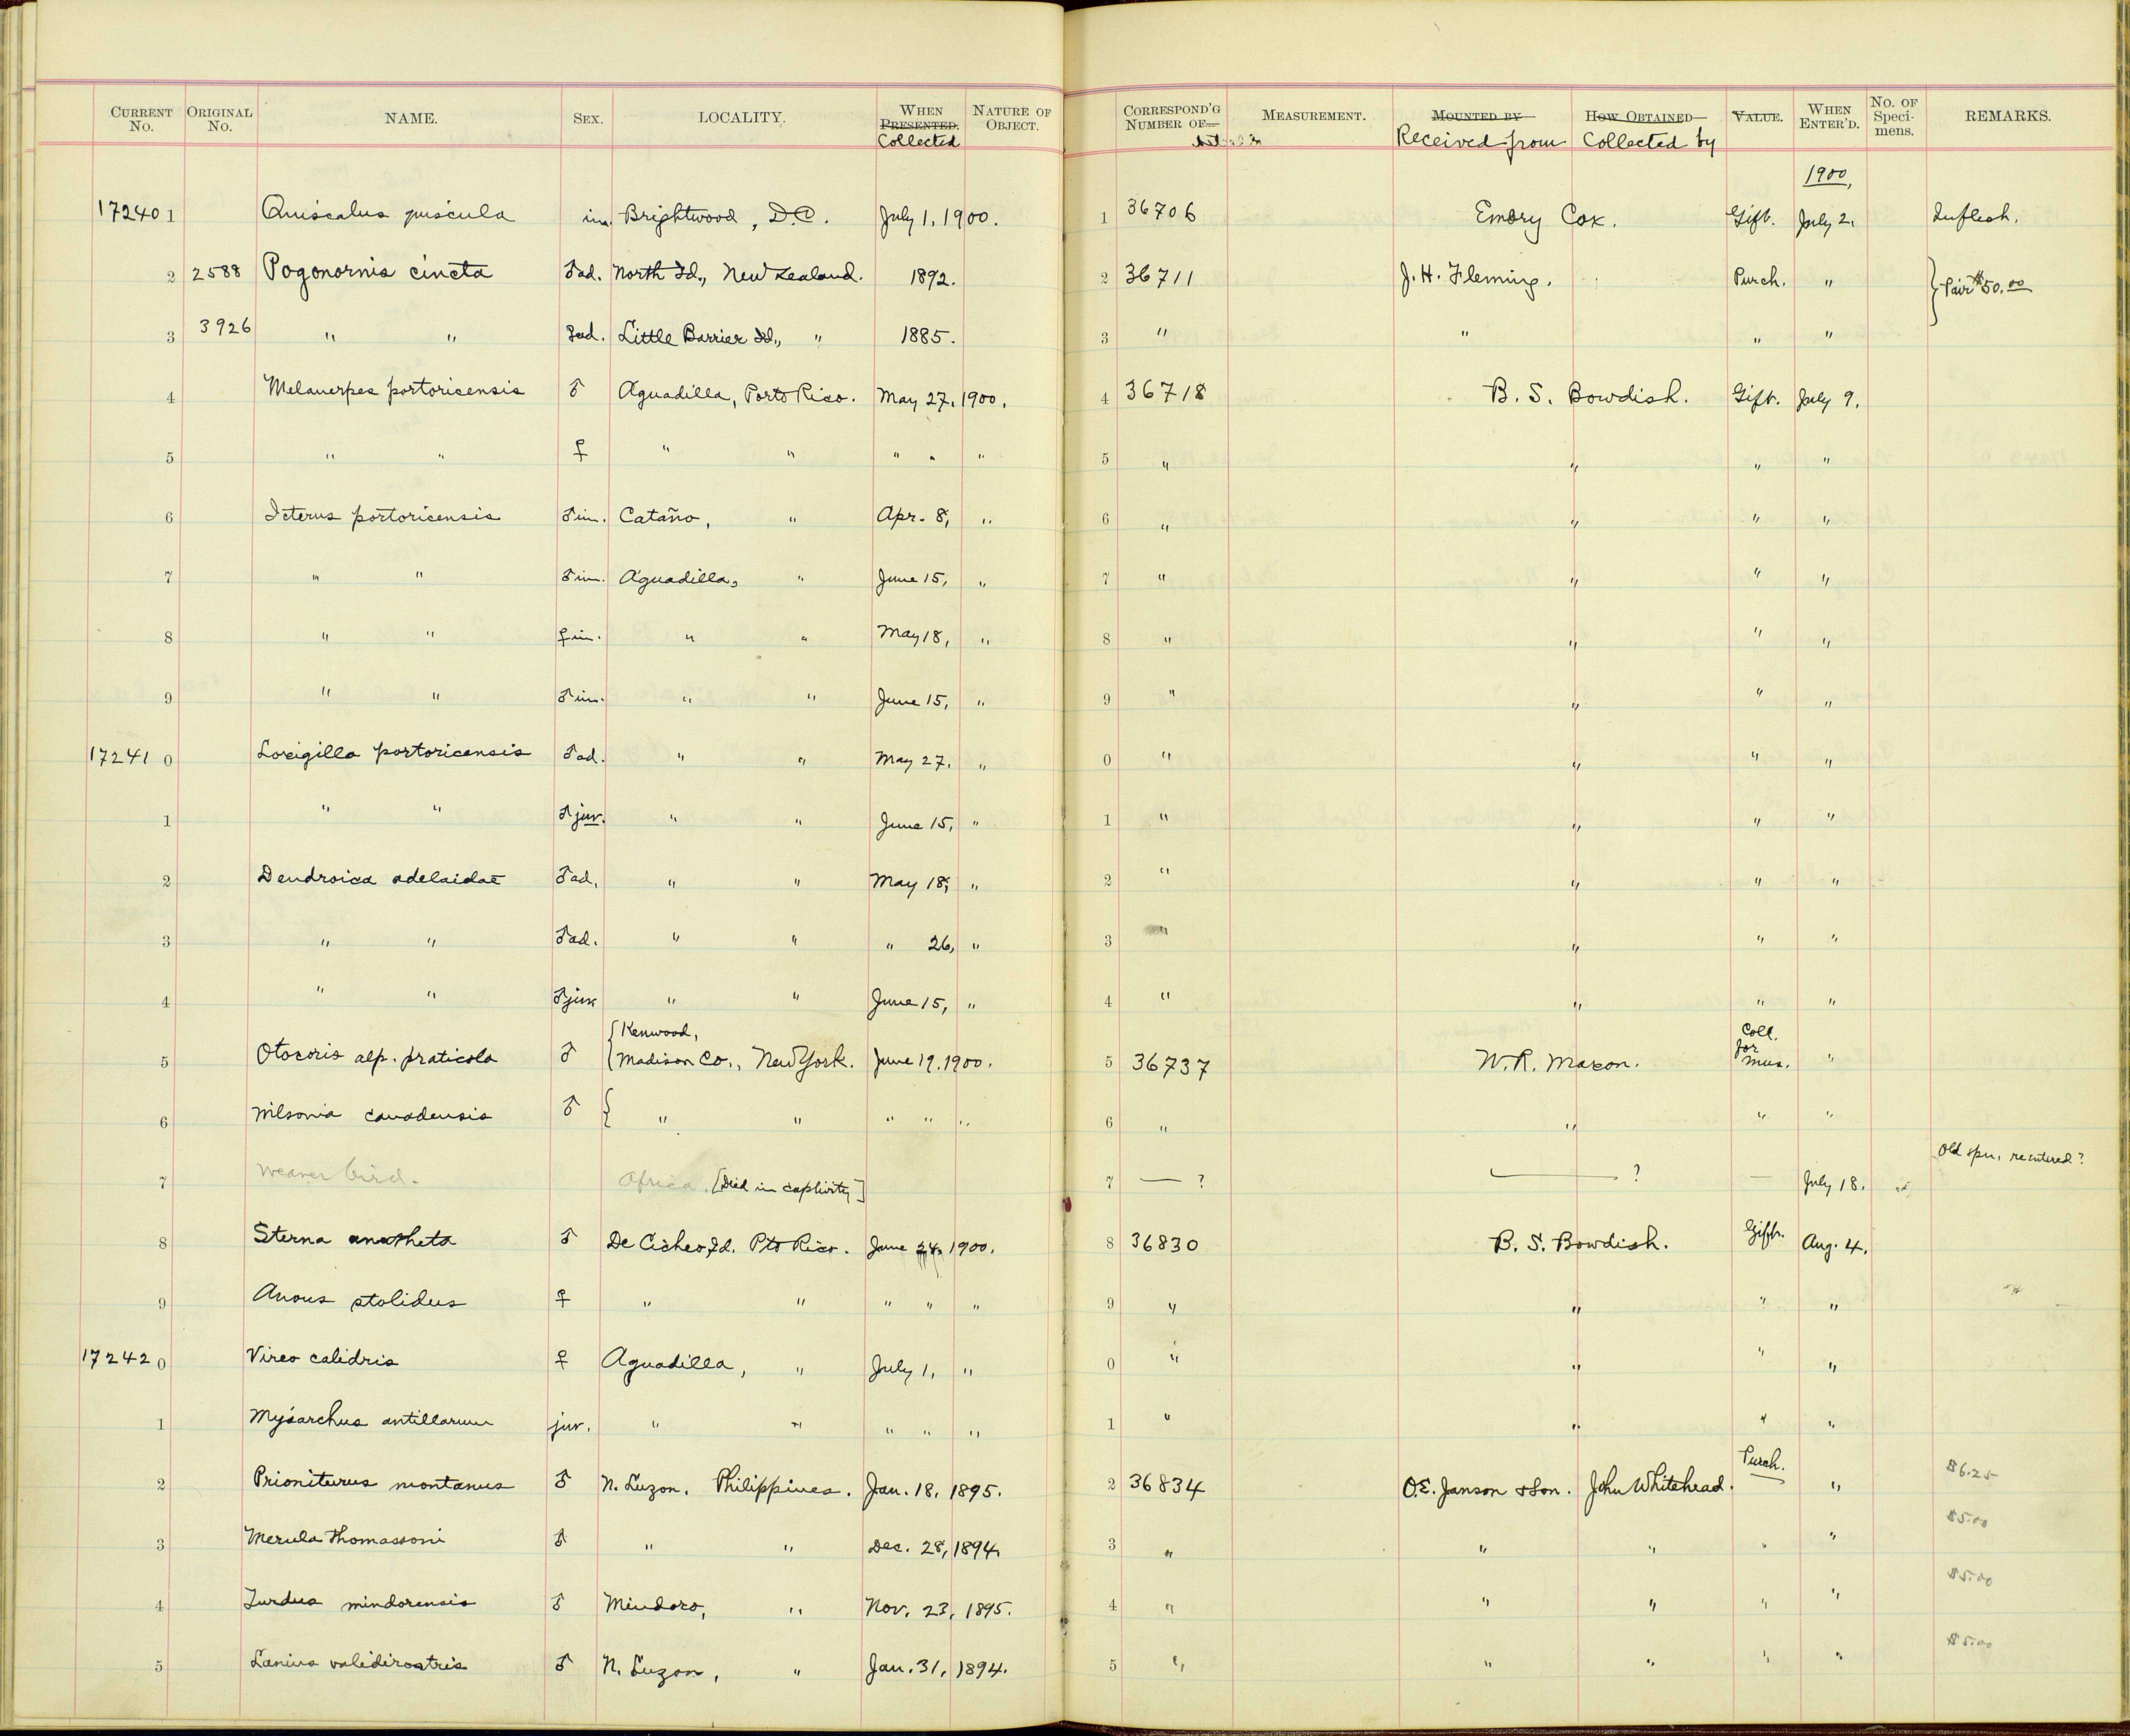 CURRENT No. ORIGINAL No. NAME. SEX. LOCALITY. WHEN PRESENTED. Collected NATURE OF OBJECT. CORRESPOND'G NUMBER OF— MEASUREMENT. MOUNTED BY— Received from HOW OBTAINED— Collected by VALUE. WHEN ENTER'D. No. OF Specimens. REMARKS.
1900,
17240 1 Quiscalus quiscula im. Brightwood, D.C. July 1, 1900. 1 36706 Embry Cox. Gift. July 2, In flesh.
2 2588 Pogonornis cincta ♂ad. North Id., New Zealand. 1892. 2 36711 J. H. Fleming. Purch. " } Pair $50.00
3 3926 " " ♀ad. Little Barrier Id., " 1885. 3 " " " "
4 Melanerpes portoricensis ♂ Aguadilla, Porto Rico. May 27, 1900. 4 36718 B. S. Bowdish. Gift. July 9.
5 " " ♀ " " " " " 5 " " " "
6 Icterus portoricensis ♂im. Cataño, " Apr. 8, " 6 " " " "
7 " " ♂im. Aguadilla, " June 15, " 7 " " " "
8 " " ♀im. " " May 18, " 8 " " " "
9 " " ♂im. " " June 15, " 9 " " " "
17241 0 Loxigilla portoricensis ♂ad. " " May 27, " 0 " " " "
1 " " ♂juv. " " June 15, " 1 " " " "
2 Dendroica adelaidae ♂ad. " " May 18, " 2 " " " "
3 " " ♂ad. " " " 26, " 3 " " " "
4 " " ♂juv. " " June 15, " 4 " " " "
5 Otocoris alp. praticola ♂ { Kenwood, Madison Co., New York. June 19, 1900. 5 36737 W. R. Maxon. Coll. for Mus. "
6 Wilsonia canadensis ♂ { " " " " " 6 " " " "
7 Weaver bird. Africa. [Died in captivity] 7 — ? — ? — July 18. Old spn. reentered?
8 Sterna anaetheta ♂ De Cicheo Id. Pto Rico. June 24, 1900. 8 36830 B. S. Bowdish. Gift. Aug. 4.
9 Anous stolidus ♀ " " " " " 9 " " " "
17242 0 Vireo calidris ♀ Aguadilla, " July 1, " 0 " " " "
1 Myiarchus antillarum juv. " " " " " 1 " " " "
2 Prioniturus montanus ♂ N. Luzon, Philippines. Jan. 18, 1895. 2 36834 O.E. Janson & Son. John Whitehead. Purch. " $6.25
3 Merula thomassoni ♂ " " Dec. 28, 1894. 3 " " " " " $5.00
4 Turdus mindorensis ♂ Mindoro, " Nov. 23, 1895. 4 " " " " " $5.00
5 Lanius validirostris ♂ N. Luzon, " Jan. 31, 1894. 5 " " " " " $5.00